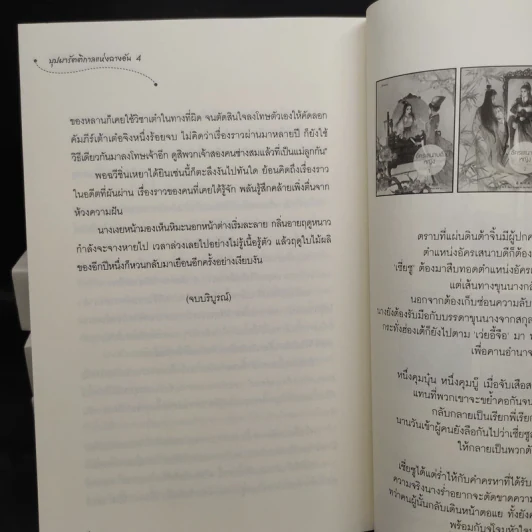 บุปผารัตติกาลแห่งฉางอัน 4
ของหลานก็เคยใช้วิชาเต๋าในทางที่ผิด จนตัดสินใจลงโทษตัวเองให้คัดลอก
คัมภีร์เต้าเต๋อจิงหนึ่งร้อยจบ ไม่คิดว่าเรื่องราวผ่านมาหลายปี ก็ยังใช้
วิธีเดียวกันมาลงโทษเจ้าอีก ดูสิพวกเจ้าสองคนช่างสมแล้วที่เป็นแม่ลูกกัน"
พอฉวีชิ่นเหยาได้ยินเช่นนี้ก็ตะลึงงันไปทันใด ย้อนคิดถึงเรื่องราว
ในอดีตที่ผันผ่าน เรื่องราวของคนที่เคยได้รู้จัก พลันรู้สึกคล้ายเพิ่งตื่นจาก
ห้วงความฝัน
นางเงยหน้ามองเห็นหิมะนอกหน้าต่างเริ่มละลาย กลิ่นอายฤดูหนาว
กำลังจะจางหายไป เวลาล่วงเลยไปอย่างไม่รู้เนื้อรู้ตัว แล้วฤดูใบไม้ผลิ
ของอีกปีหนึ่งก็หวนกลับมาเยือนอีกครั้งอย่างเงียบงัน
(จบบริบูรณ์)
ตราบที่แผ่นดินต้าจิ้นมีผู้ปกค
ตำแหน่งอัครเสนาบดีก็ต้อง
'เซี่ยซู' ต้องมาสืบทอดตำแหน่งอัครเ
แต่เส้นทางขุนนางกลั
นอกจากต้องเก็บซ่อนความลับ
นางยังต้องรับมือกับบรรดาขุนนางจากสกุล
กระทั่งฮ่องเต้ก็ยังไปตาม 'เว่ยอี้จือ' มา
เพื่อคานอำนาจ
หนึ่งคุมบุ๋น หนึ่งคุมบู๊ เมื่อจับเสือส
แทนที่พวกเขาจะขย้ำคอกันจน
กลับกลายเป็นเรียกพี่เรียก
นานวันเข้าผู้คนยังลือกันไปว่าเซี่ยซู
ให้กลายเป็นพวกตั
เซี่ยซูได้แต่ร่ำไห้กับคำครหาที่ได้รับ
ความจริงนางร่ำอยากจะตัดขาดความ
ทว่าคนผู้นั้นกลับเดินหน้าตอแย ทั้งยัง